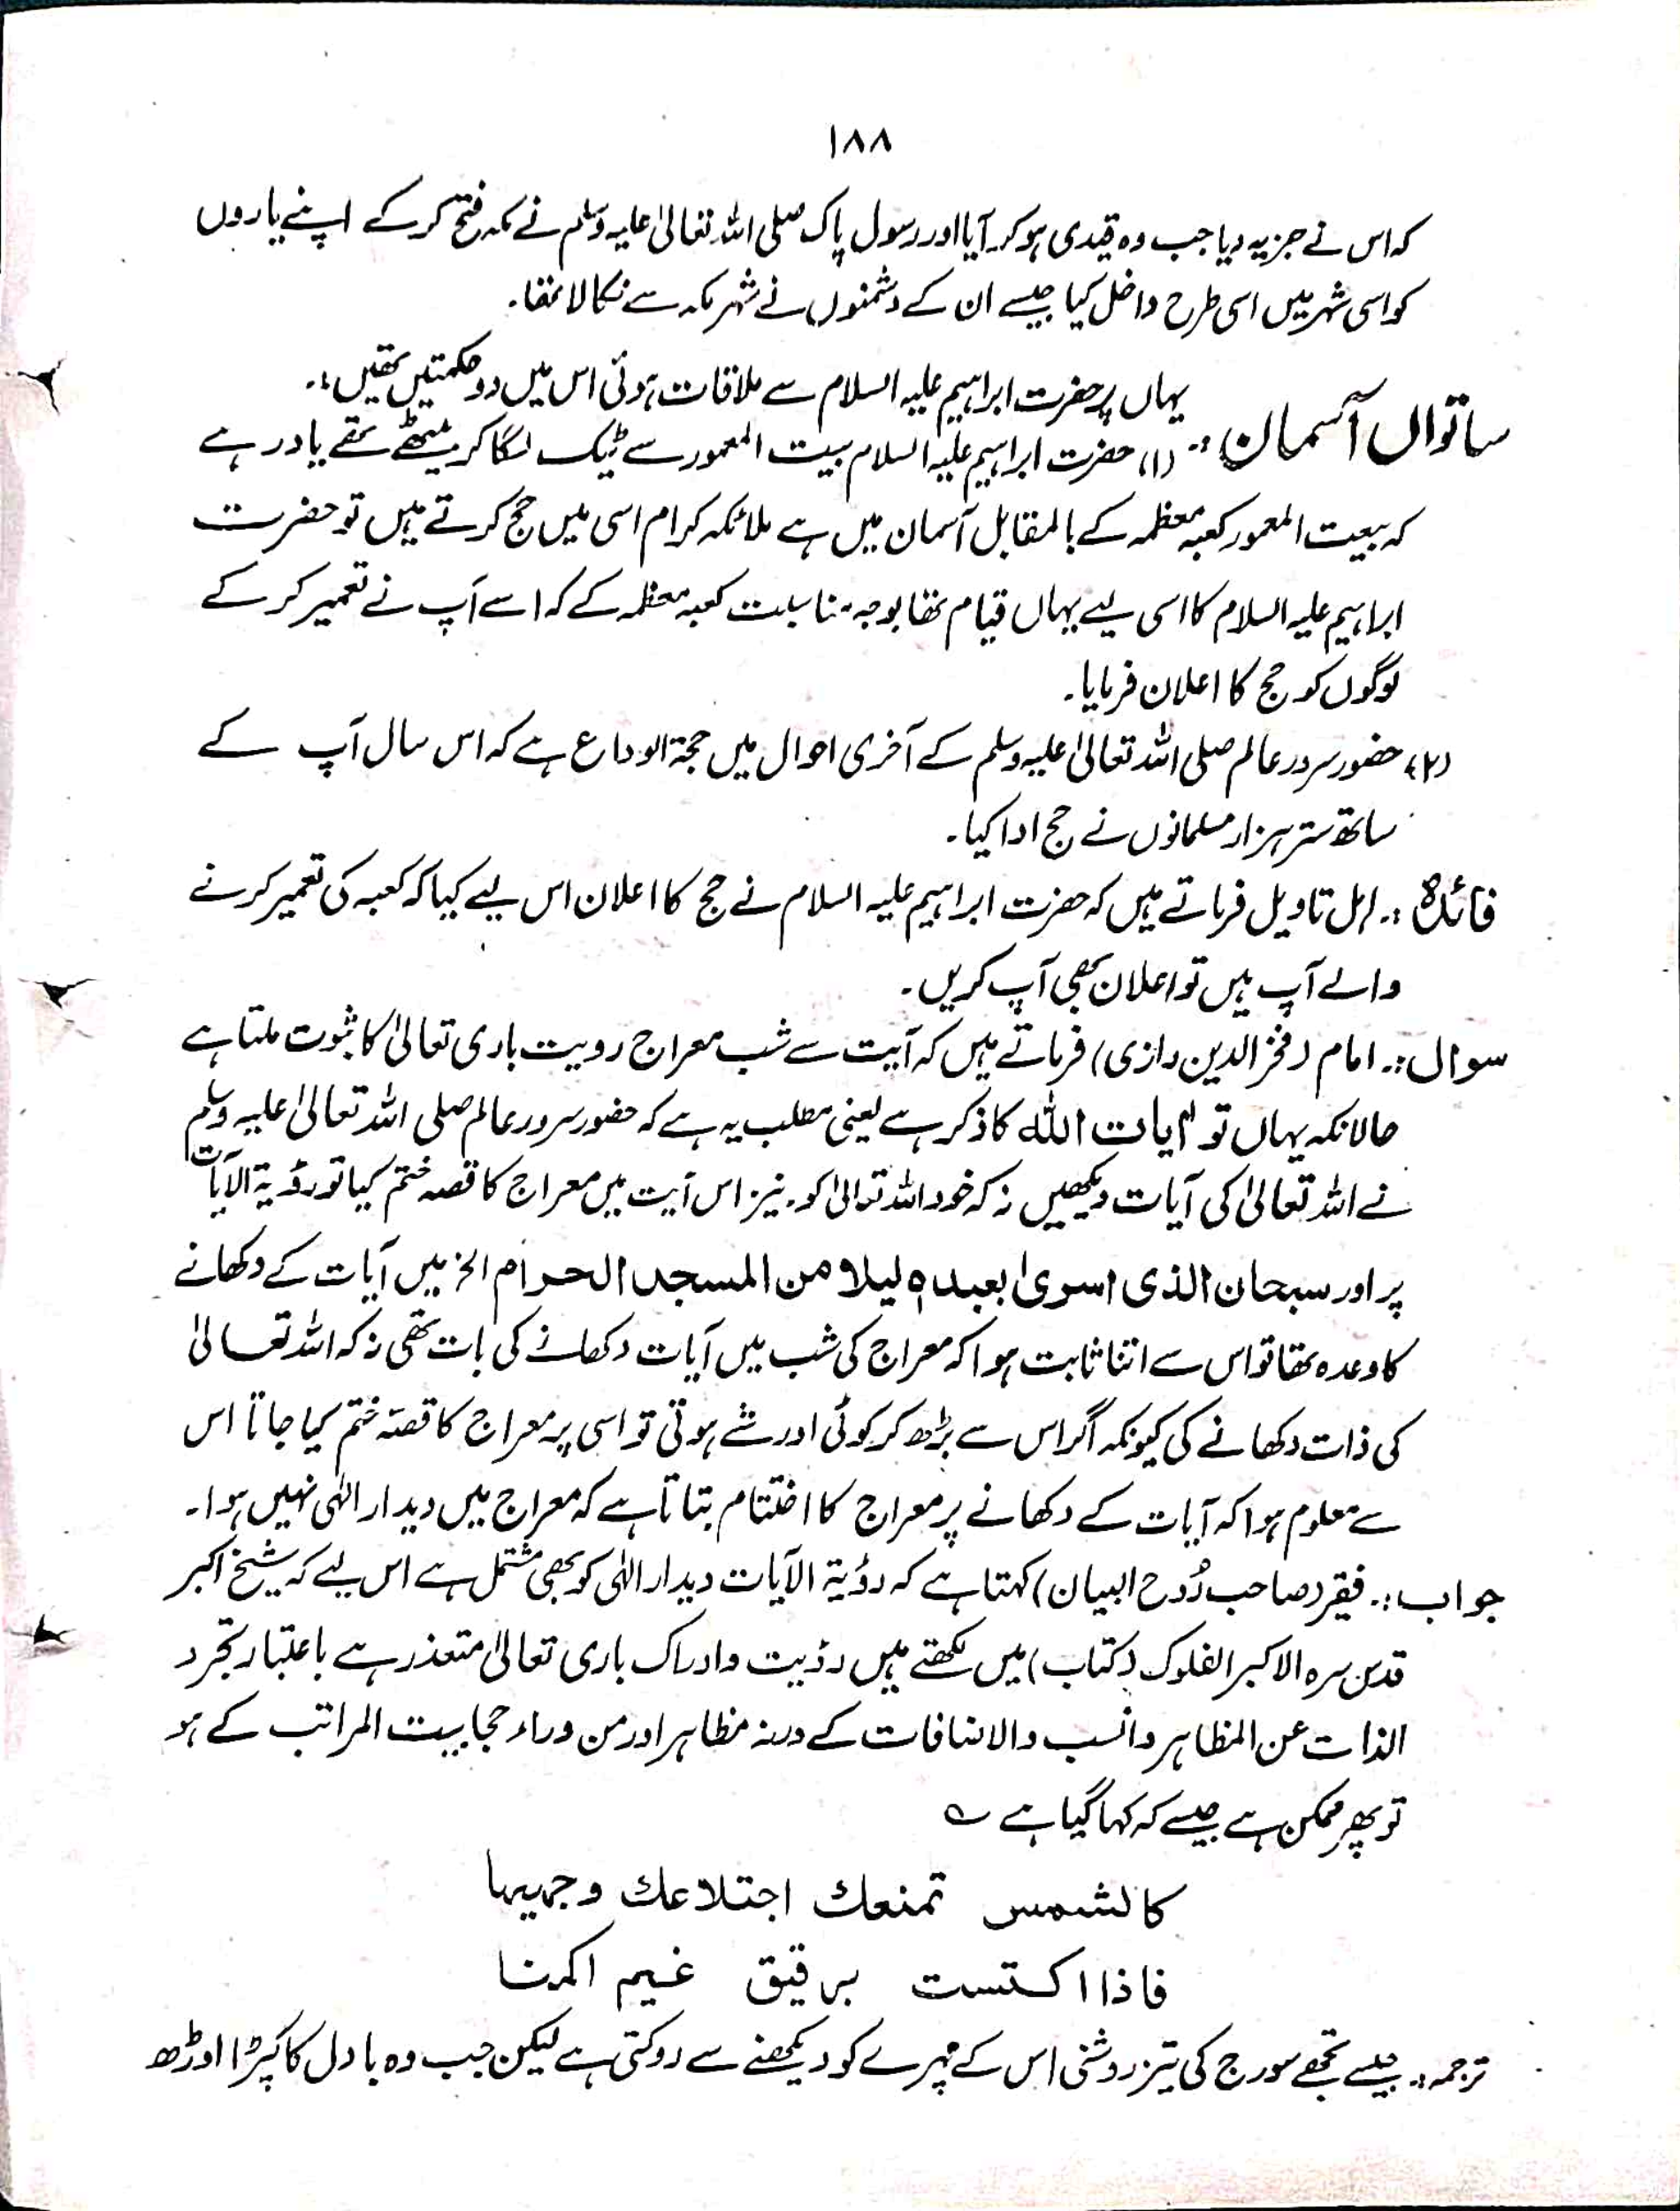 ۱۸۸
کہ اس نے جزیہ دیا جب وہ قیدی ہو کر آیا اور رسول پاک صلی اللہ تعالیٰ علیہ وسلم نے مکہ فتح کر کے اپنے یاروں
کو اسی شہر میں اسی طرح داخل کیا جیسے ان کے دشمنوں نے شہر مکہ سے نکالا تھا۔
ساتواں آسمان :۔ یہاں پر حضرت ابراہیم علیہ السلام سے ملاقات ہوئی اس میں دو حکمتیں تھیں :۔
(۱) حضرت ابراہیم علیہ السلام بیت المعمور سے ٹیک لگا کر بیٹھے تھے یاد رہے
کہ بیعت المعمور کعبہ معظمہ کے بالمقابل آسمان میں ہے ملائکہ کرام اسی میں حج کرتے ہیں تو حضرت
ابراہیم علیہ السلام کا اسی لیے یہاں قیام تھا بوجہ مناسبت کعبہ معظمہ کے کہ اسے آپ نے تعمیر کر کے
لوگوں کو حج کا اعلان فرمایا۔
(۲) حضور سرور عالم صلی اللہ تعالیٰ علیہ وسلم کے آخری احوال میں حجۃ الوداع ہے کہ اس سال آپ کے
ساتھ ستر ہزار مسلمانوں نے حج ادا کیا۔
فائدہ :۔ اہل تاویل فرماتے ہیں کہ حضرت ابراہیم علیہ السلام نے حج کا اعلان اس لیے کیا کہ کعبہ کی تعمیر کرنے
والے آپ ہیں تو اعلان بھی آپ کریں۔
سوال :۔ امام (فخر الدین رازی) فرماتے ہیں کہ آیت سے شب معراج رویت باری تعالیٰ کا ثبوت ملتا ہے
حالانکہ یہاں تو آیات اللہ کا ذکر ہے یعنی مطلب یہ ہے کہ حضور سرور عالم صلی اللہ تعالیٰ علیہ وسلم
نے اللہ تعالیٰ کی آیات دیکھیں نہ کہ خود اللہ تعالیٰ کو۔ نیز اس آیت میں معراج کا قصہ ختم کیا تو رؤیۃ الآیات
پر اور سبحان الذی اسریٰ بعبدہ لیلا من المسجد الحرام الخ میں آیات کے دکھانے
کا وعدہ تھا تو اس سے اتنا ثابت ہوا کہ معراج کی شب میں آیات دکھانے کی بات تھی نہ کہ اللہ تعالیٰ
کی ذات دکھانے کی کیونکہ اگر اس سے بڑھ کر کوئی اور شے ہوتی تو اسی پر معراج کا قصہ ختم کیا جاتا اس
سے معلوم ہوا کہ آیات کے دکھانے پر معراج کا اختتام بتاتا ہے کہ معراج میں دیدار الٰہی نہیں ہوا۔
جواب :۔ فقیر (صاحب رُوح البیان) کہتا ہے کہ رؤیۃ الآیات دیدار الٰہی کو بھی مشتمل ہے اس لیے کہ شیخ اکبر
قدس سرہ الاکبر الفلوک (کتاب) میں لکھتے ہیں رؤیت و ادراک باری تعالیٰ متعذر ہے باعتبار تجرد
الذات عن المظاہر و انسب والاضافات کے ورنہ مظاہر اور من وراء حجابیت المراتب کے ہو
تو پھر ممکن ہے جیسے کہ کہا گیا ہے ؎
کالشمس تمنعك اجتلاعك وجهها
فاذا اکتست برقیق غیم امکنا
ترجمہ :۔ جیسے تجھے سورج کی تیز روشنی اس کے چہرے کو دیکھنے سے روکتی ہے لیکن جب وہ بادل کا کپڑا اوڑھ